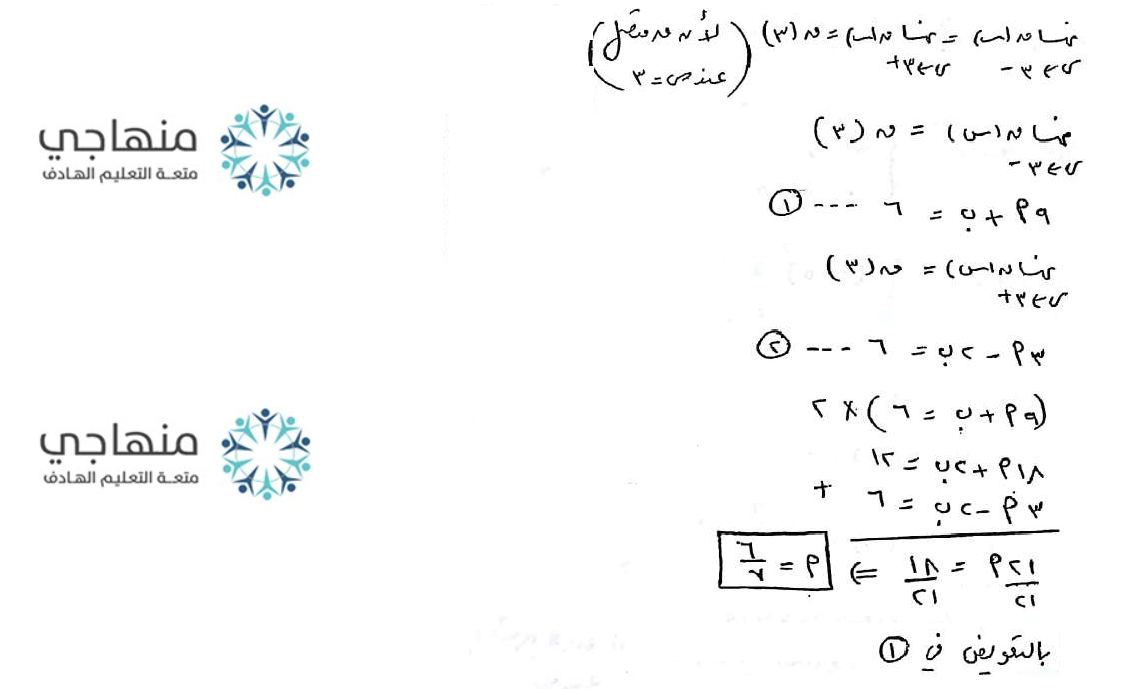 نهــا ق(س) = نهــا ق(س) = ق(٣) (لأن ق متصل
س←٣- س←٣+ عند س=٣)
نهــا ق(س) = ق(٣)
س←٣-
٩أ + ب = ٦ --- ①
نهــا ق(س) = ق(٣)
س←٣+
٣أ - ٢ب = ٦ --- ②
(٩أ + ب = ٦) × ٢
١٨أ + ٢ب = ١٢
٣أ - ٢ب = ٦ +
٢١أ/٢١ = ١٨/٢١ ⇐ أ = ٦/٧
بالتعويض في ①
منهاجي
متعة التعليم الهادف
منهاجي
متعة التعليم الهادف